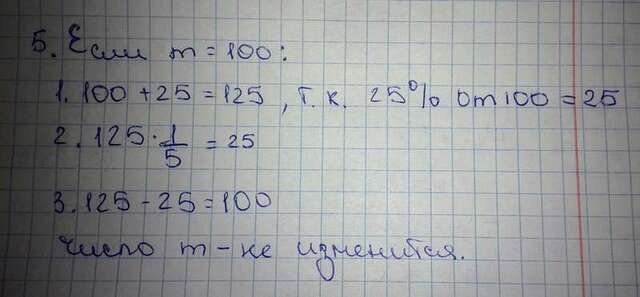 5. Если m = 100:
1. 100 + 25 = 125, т.к. 25% от 100 = 25
2. 125 · 1/5 = 25
3. 125 - 25 = 100
число m - не изменится.